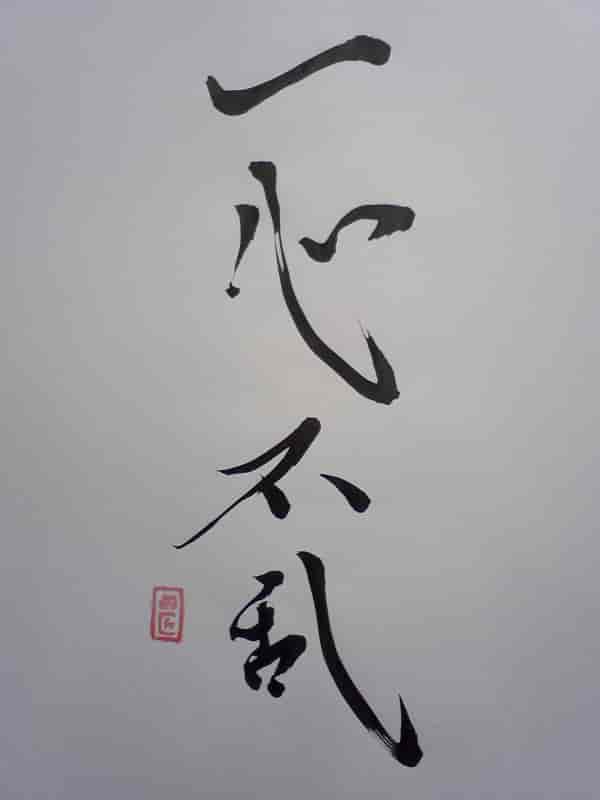 一心不乱